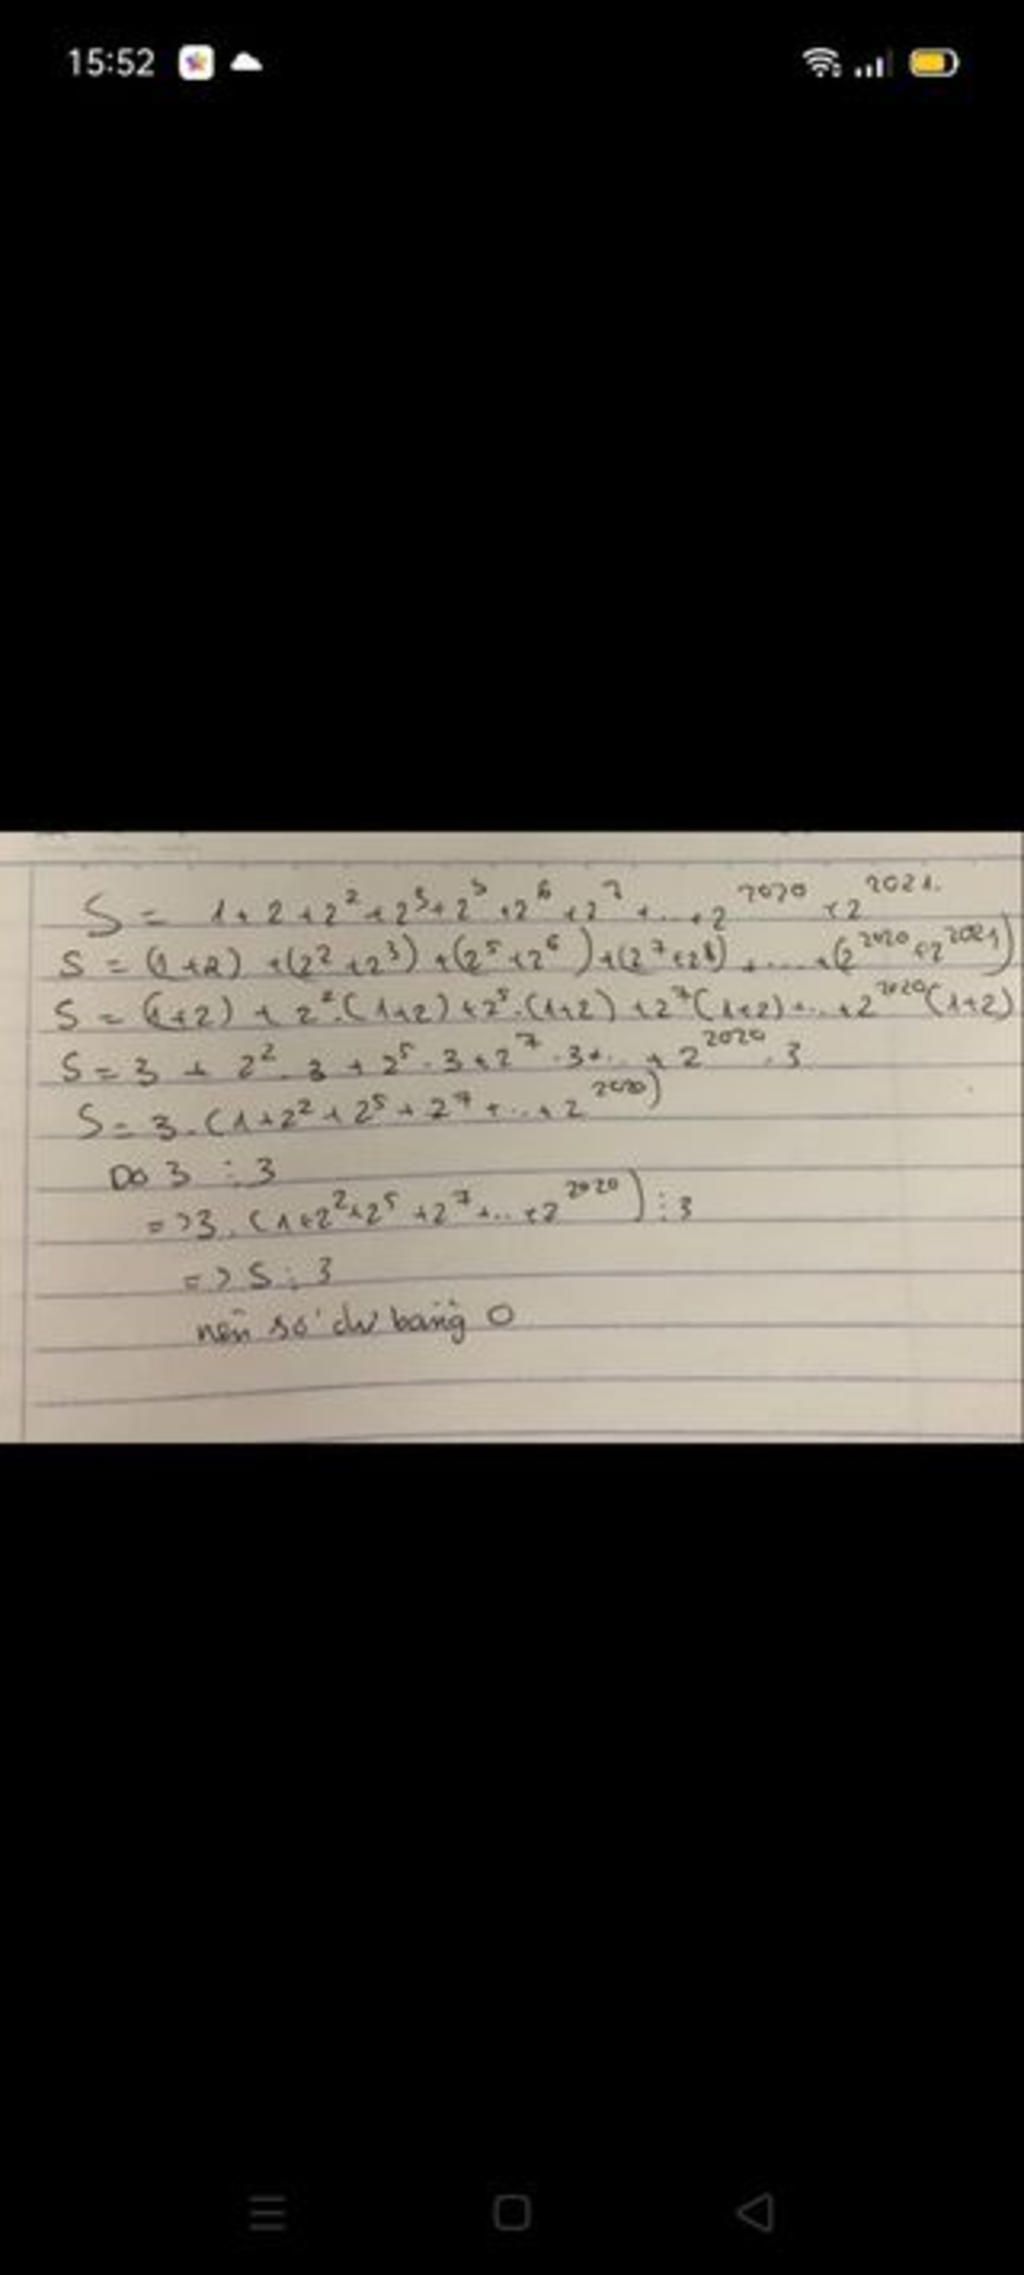 15:52
S = 1 + 2 + 2² + 2³ + 2⁵ + 2⁶ + 2⁷ + ... + 2²⁰²⁰ + 2²⁰²¹.
S = (1+2) + (2² + 2³) + (2⁵ + 2⁶) + (2⁷ + 2⁸) + .... + (2²⁰²⁰ + 2²⁰²¹)
S = (1+2) + 2².(1+2) + 2⁵.(1+2) + 2⁷(1+2) + ... + 2²⁰²⁰(1+2)
S = 3 + 2².3 + 2⁵.3 + 2⁷.3 + ... + 2²⁰²⁰.3
S = 3.(1 + 2² + 2⁵ + 2⁷ + ... + 2²⁰²⁰)
Do 3 ⋮ 3
=> 3.(1 + 2² + 2⁵ + 2⁷ + ... + 2²⁰²⁰) ⋮ 3
=> S ⋮ 3
nên số dư bằng 0